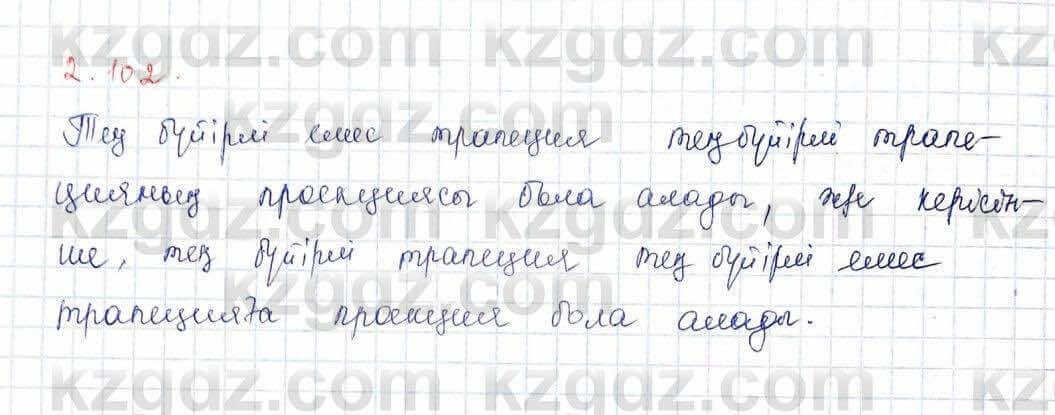 kzgdz.com kzgdz.com kz
2.102.
kzgdz.com
Тең бүйірлі емес трапеция теңбүйірлі трапе-
kzgdz.com kzgdz.com kz
цияның проекциясы бола алады, және керісін-
kzgdz.com
ше, тең бүйірлі трапеция тең бүйірлі емес
kzgdz.com
трапецияға проекция бола алады.
kzgdz.com kzgdz.com kz